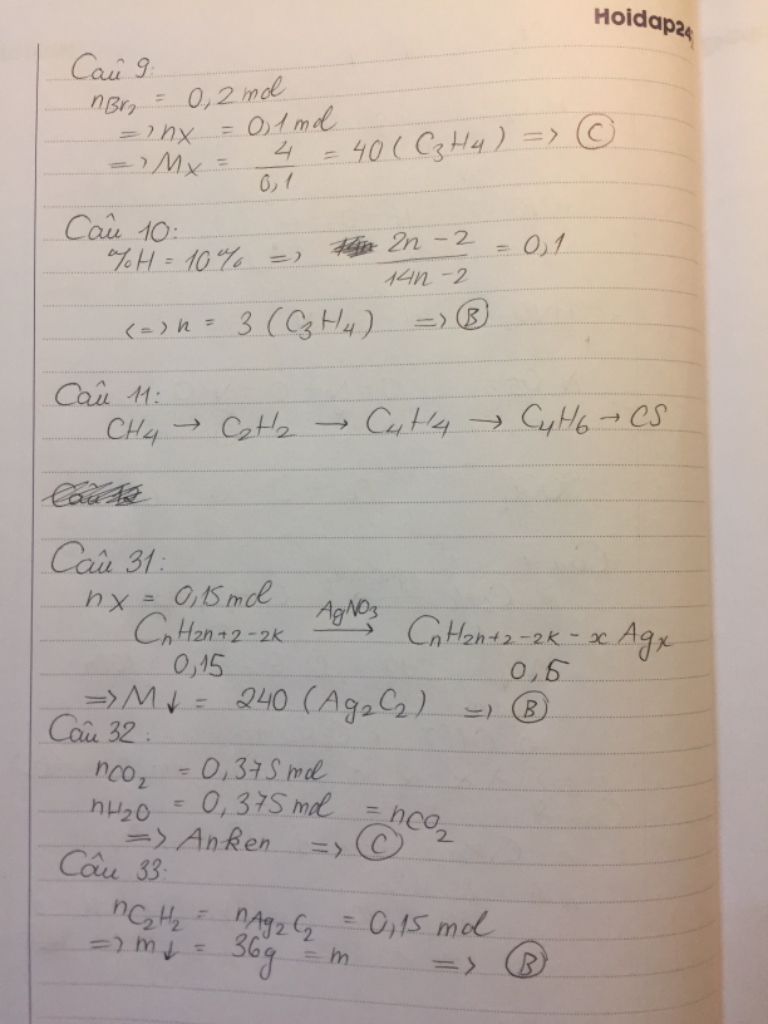 Hoidap24
Câu 9:
nBr₂ = 0,2 mol
=> nx = 0,1 mol
=> Mx = 4/0,1 = 40 ( C₃H₄ ) => C
Câu 10:
%H = 10% => 2n - 2 / 14n - 2 = 0,1
<=> n = 3 ( C₃H₄ ) => B
Câu 11:
CH₄ → C₂H₂ → C₄H₄ → C₄H₆ → CS
Câu 31:
nx = 0,15 mol
CnH2n+2-2k AgNO₃ → CnH2n+2-2k-x Agx
0,15 0,15
=> M↓ = 240 ( Ag₂C₂ ) => B
Câu 32:
nCO₂ = 0,375 mol
nH₂O = 0,375 mol = nCO₂
=> Anken => C
Câu 33:
nC₂H₂ = nAg₂C₂ = 0,15 mol
=> m↓ = 36g = m => B